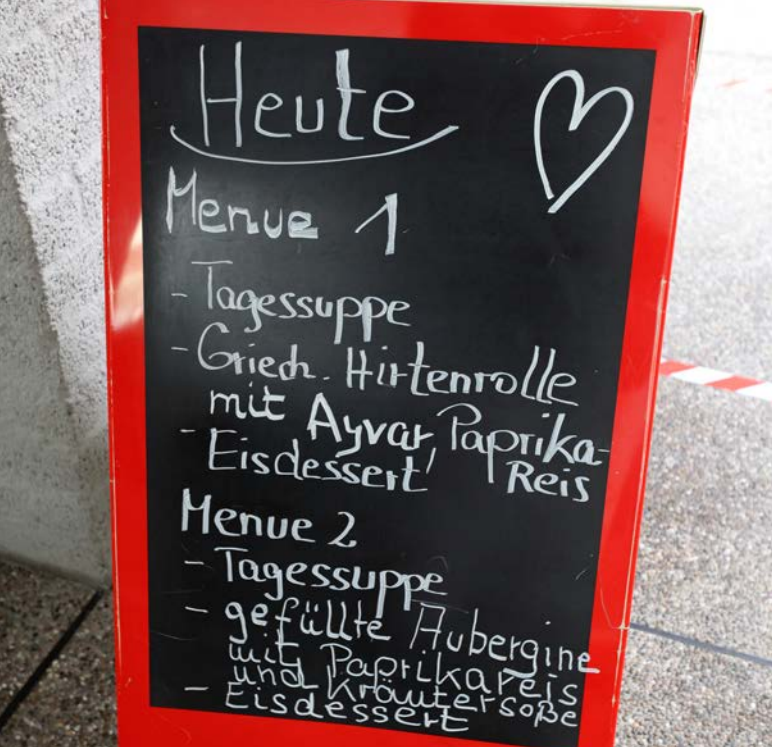 Heute
Menue 1
- Tagessuppe
- Griech. Hirtenrolle
mit Ayvar, Paprika-
- Eisdessert Reis
Menue 2
- Tagessuppe
- gefüllte Aubergine
mit Paprikareis
und Kräutersoße
- Eisdessert